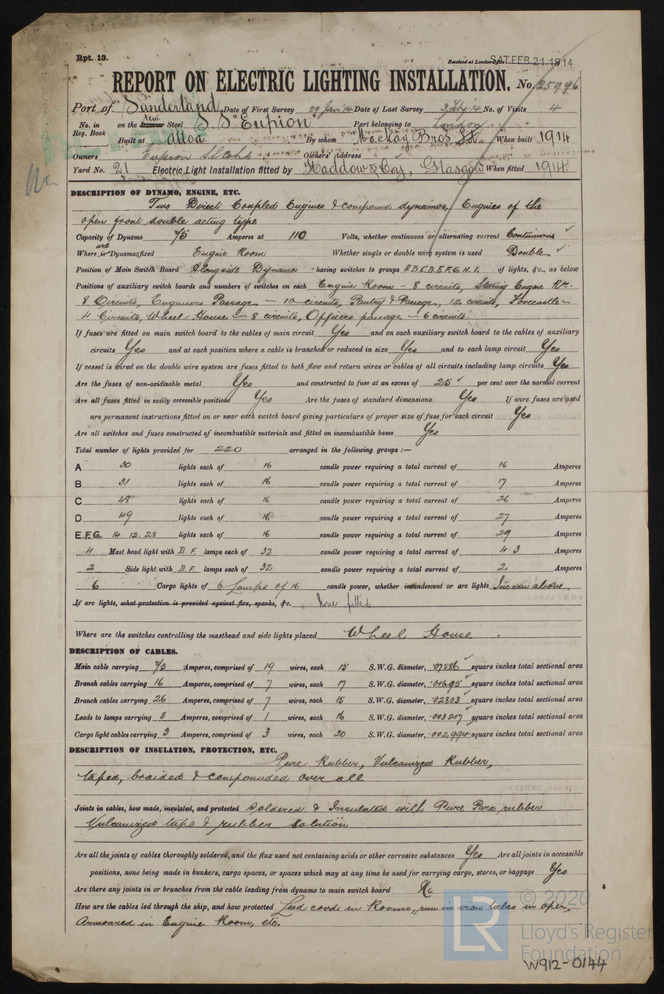 Rpt. 13.
Received at London Office SAT. FEB. 21. 1914
REPORT ON ELECTRIC LIGHTING INSTALLATION. No. 25796
Port of Sunderland Date of First Survey 29 Jan 14 Date of Last Survey 3 Feb 14 No. of Visits 4
No. in on the New Steel S S "Eupion" Port belonging to London
Reg. Book Built at Alloa By whom Mackay Bros When built 1914
Owners Eupion SS Co Ld Owners' Address
Yard No. 21 Electric Light Installation fitted by Haddow & Coy, Glasgow When fitted 1914
DESCRIPTION OF DYNAMO, ENGINE, ETC.
Two Direct Coupled Engines & compound dynamos, Engines of the
open front double acting type
Capacity of Dynamo 75 Amperes at 110 Volts, whether continuous or alternating current Continuous
Where are Dynamos fixed Engine Room Whether single or double wire system is used Double
Position of Main Switch Board Alongside Dynamos having switches to groups A B C D E F G H I of lights, &c., as below
Positions of auxiliary switch boards and numbers of switches on each Engine Room - 8 circuits, Steering Engine Rm.
8 Circuits, Engineers Passage - 10 circuits, Pantry & Passage, 12 circuits, Forecastle -
4 Circuits, Wheel House - 8 circuits, Officers passage - 6 circuits
If fuses are fitted on main switch board to the cables of main circuit Yes and on each auxiliary switch board to the cables of auxiliary
circuits Yes and at each position where a cable is branched or reduced in size Yes and to each lamp circuit Yes
If vessel is wired on the double wire system are fuses fitted to both flow and return wires or cables of all circuits including lamp circuits Yes
Are the fuses of non-oxidizable metal Yes and constructed to fuse at an excess of 25 per cent over the normal current
Are all fuses fitted in easily accessible positions Yes Are the fuses of standard dimensions Yes If wire fuses are used
are permanent instructions fitted on or near each switch board giving particulars of proper size of fuse for each circuit Yes
Are all switches and fuses constructed of incombustible materials and fitted on incombustible bases Yes
Total number of lights provided for 220 arranged in the following groups :—
A 30 lights each of 16 candle power requiring a total current of 16 Amperes
B 31 lights each of 16 candle power requiring a total current of 17 Amperes
C 48 lights each of 16 candle power requiring a total current of 26 Amperes
D 49 lights each of 16 candle power requiring a total current of 27 Amperes
E.F.G. 14. 12. 28 lights each of 16 candle power requiring a total current of 29 Amperes
4 Mast head light with D.F. lamps each of 32 candle power requiring a total current of 4.3 Amperes
2 Side light with D.F. lamps each of 32 candle power requiring a total current of 2. Amperes
6 Cargo lights of 6 Lamps of 16 candle power, whether incandescent or arc lights Incandescent
If arc lights, what protection is provided against fire, sparks, &c. None fitted
Where are the switches controlling the masthead and side lights placed Wheel House.
DESCRIPTION OF CABLES.
Main cable carrying 75 Amperes, comprised of 19 wires, each 15 S.W.G. diameter, .07586 square inches total sectional area
Branch cables carrying 16 Amperes, comprised of 7 wires, each 17 S.W.G. diameter, .01695 square inches total sectional area
Branch cables carrying 26 Amperes, comprised of 7 wires, each 15 S.W.G. diameter, .02803 square inches total sectional area
Leads to lamps carrying 3 Amperes, comprised of 1 wires, each 16 S.W.G. diameter, .003217 square inches total sectional area
Cargo light cables carrying 3 Amperes, comprised of 3 wires, each 20 S.W.G. diameter, .002994 square inches total sectional area
DESCRIPTION OF INSULATION, PROTECTION, ETC.
Pure Rubber, Vulcanized Rubber,
taped, braided & compounded over all
Joints in cables, how made, insulated, and protected Soldered & Insulated with Pure Para rubber
Vulcanized tape & rubber solution
Are all the joints of cables thoroughly soldered, and the flux used not containing acids or other corrosive substances Yes Are all joints in accessible
positions, none being made in bunkers, cargo spaces, or spaces which may at any time be used for carrying cargo, stores, or baggage Yes
Are there any joints in or branches from the cable leading from dynamo to main switch board No
How are the cables led through the ship, and how protected Lead covd in Rooms, run in iron tubes in open,
Armoured in Engine Room, etc.
© 2020
LR Lloyd's Register
Foundation
W912-0144